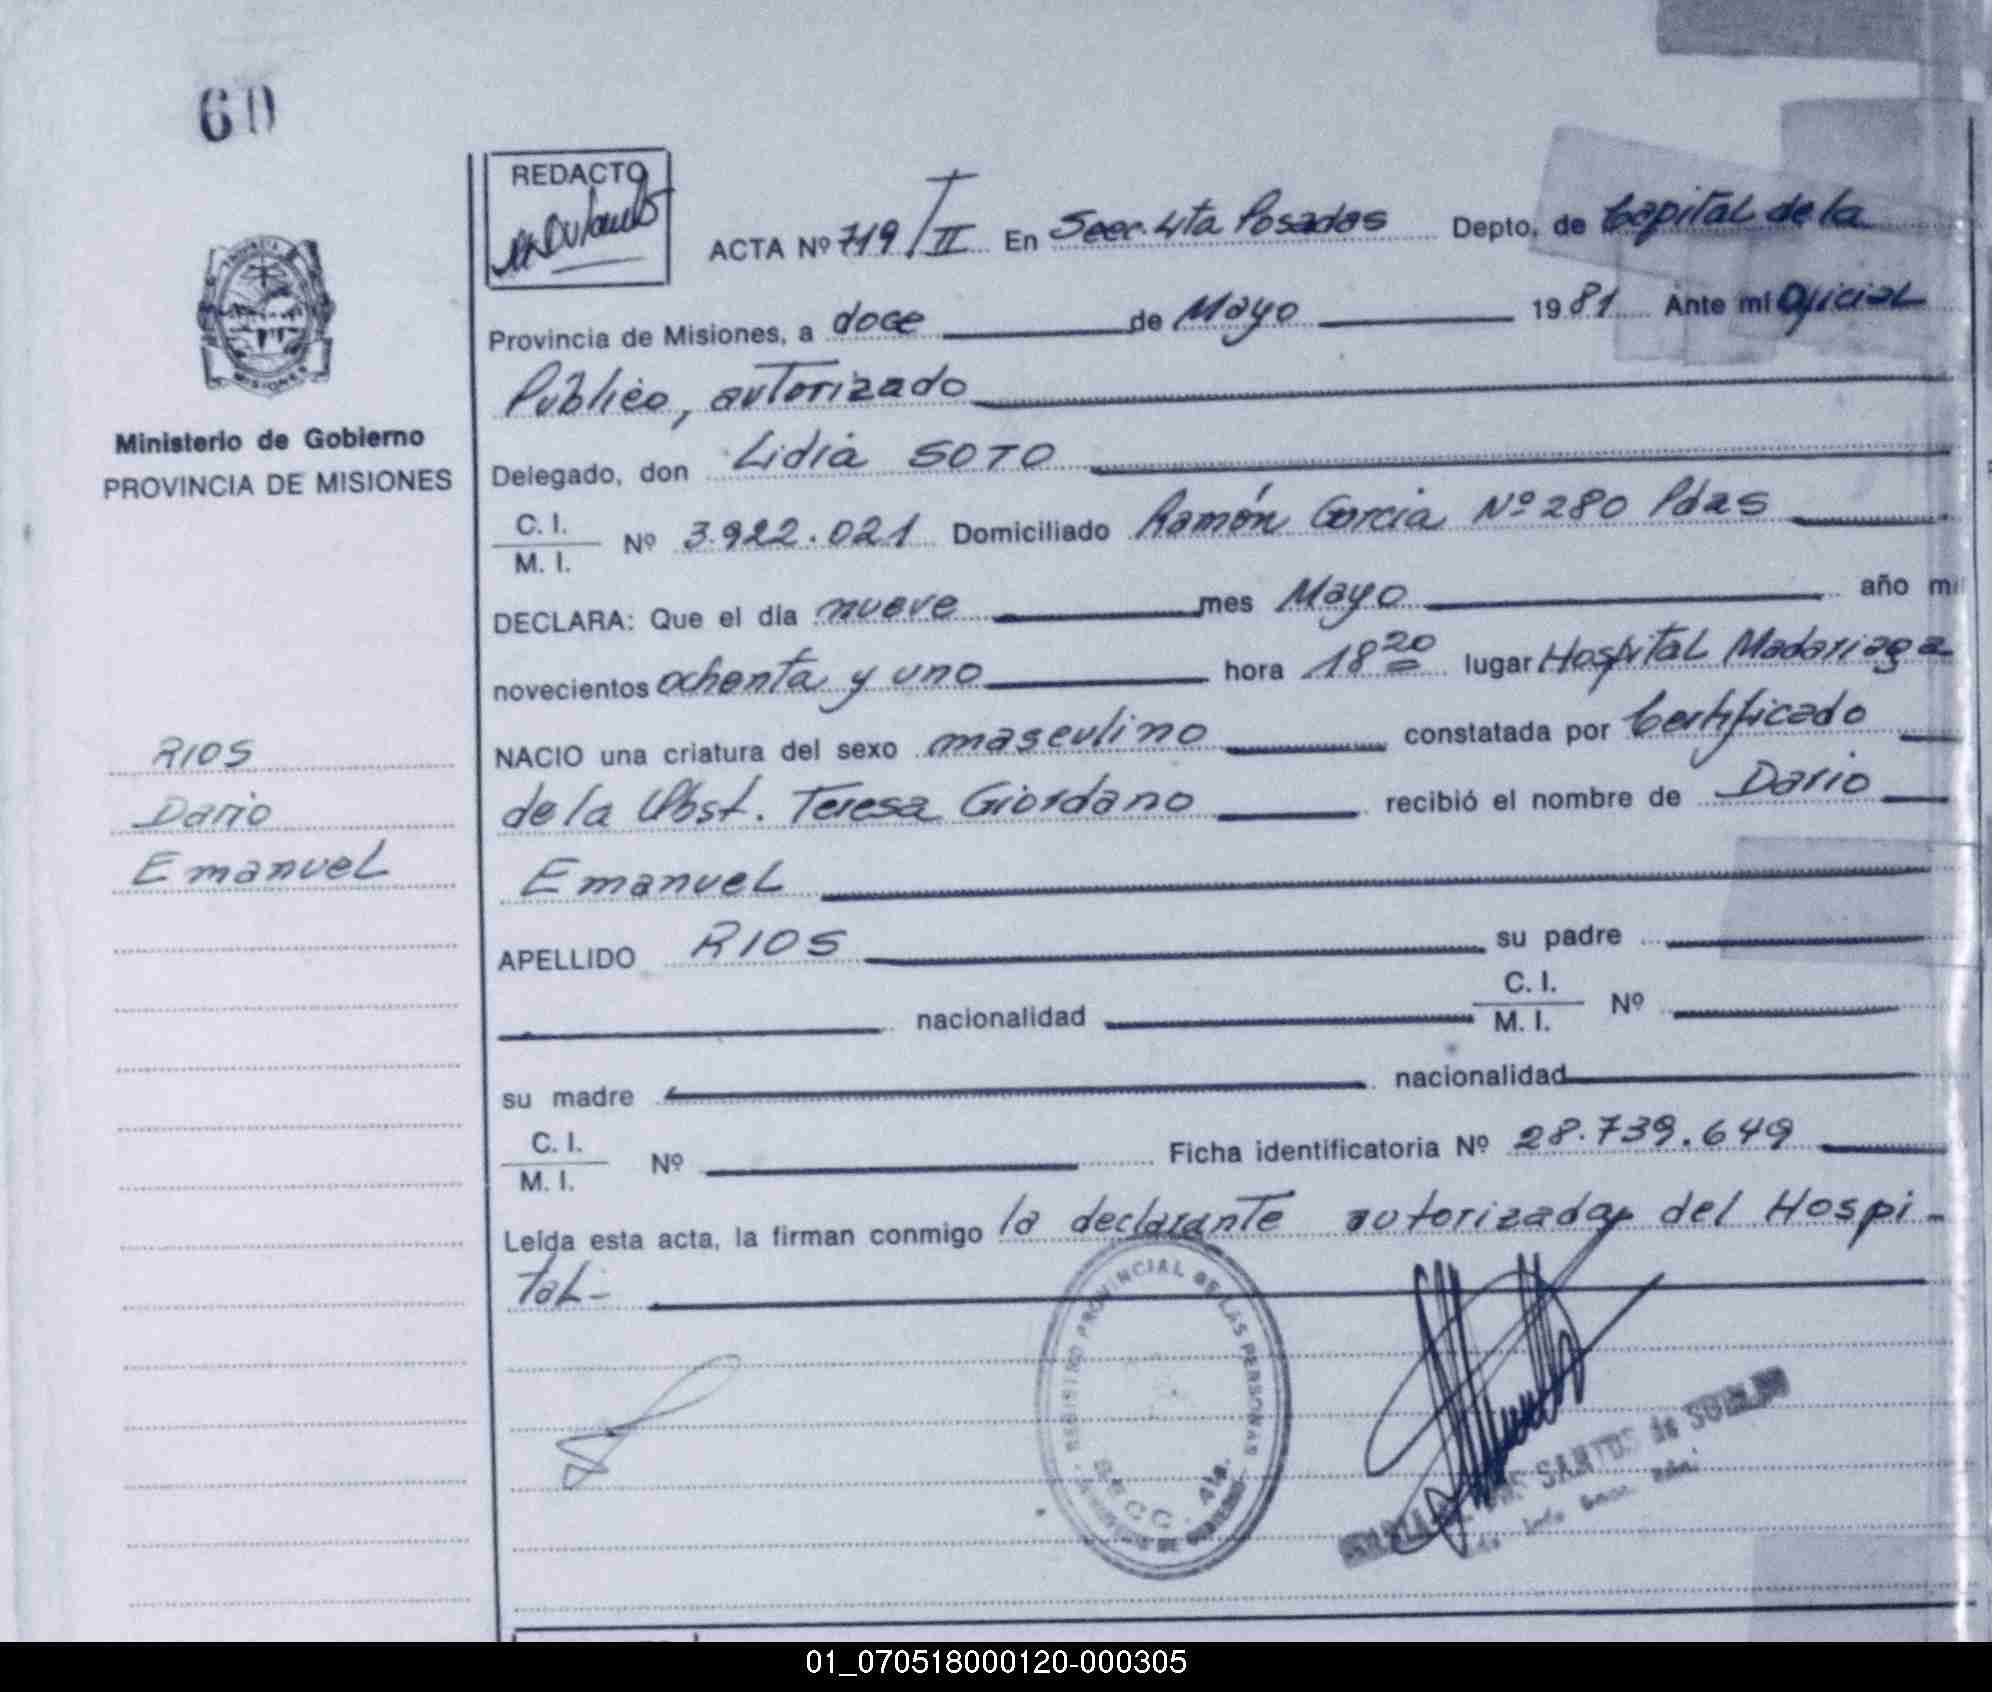 60
REDACTO
ACTA Nº 719/II En Secc. 4ta Posadas Depto. de Capital de la
Provincia de Misiones, a doce de Mayo 1981 Ante mí Oficial
Público, autorizado
Ministerio de Gobierno
PROVINCIA DE MISIONES
Delegado, don Lidia SOTO
C. I.
M. I. Nº 3.922.021 Domiciliado Ramón Garcia Nº 280 Pdas
DECLARA: Que el día nueve mes Mayo año mi
novecientos ochenta y uno hora 18 20 lugar Hospital Madariaga
NACIO una criatura del sexo masculino constatada por Certificado
de la Obst. Teresa Giordano recibió el nombre de Dario
Emanuel
RIOS
Dario
Emanuel
APELLIDO RIOS su padre
nacionalidad C. I. M. I. Nº
su madre nacionalidad
C. I.
M. I. Nº Ficha identificatoria Nº 28.739.649
Leída esta acta, la firman conmigo la declarante autorizada del Hospi-
tal-
REGISTRO PROVINCIAL DE LAS PERSONAS
SECC. 4ta.
SANTOS de
01_070518000120-000305